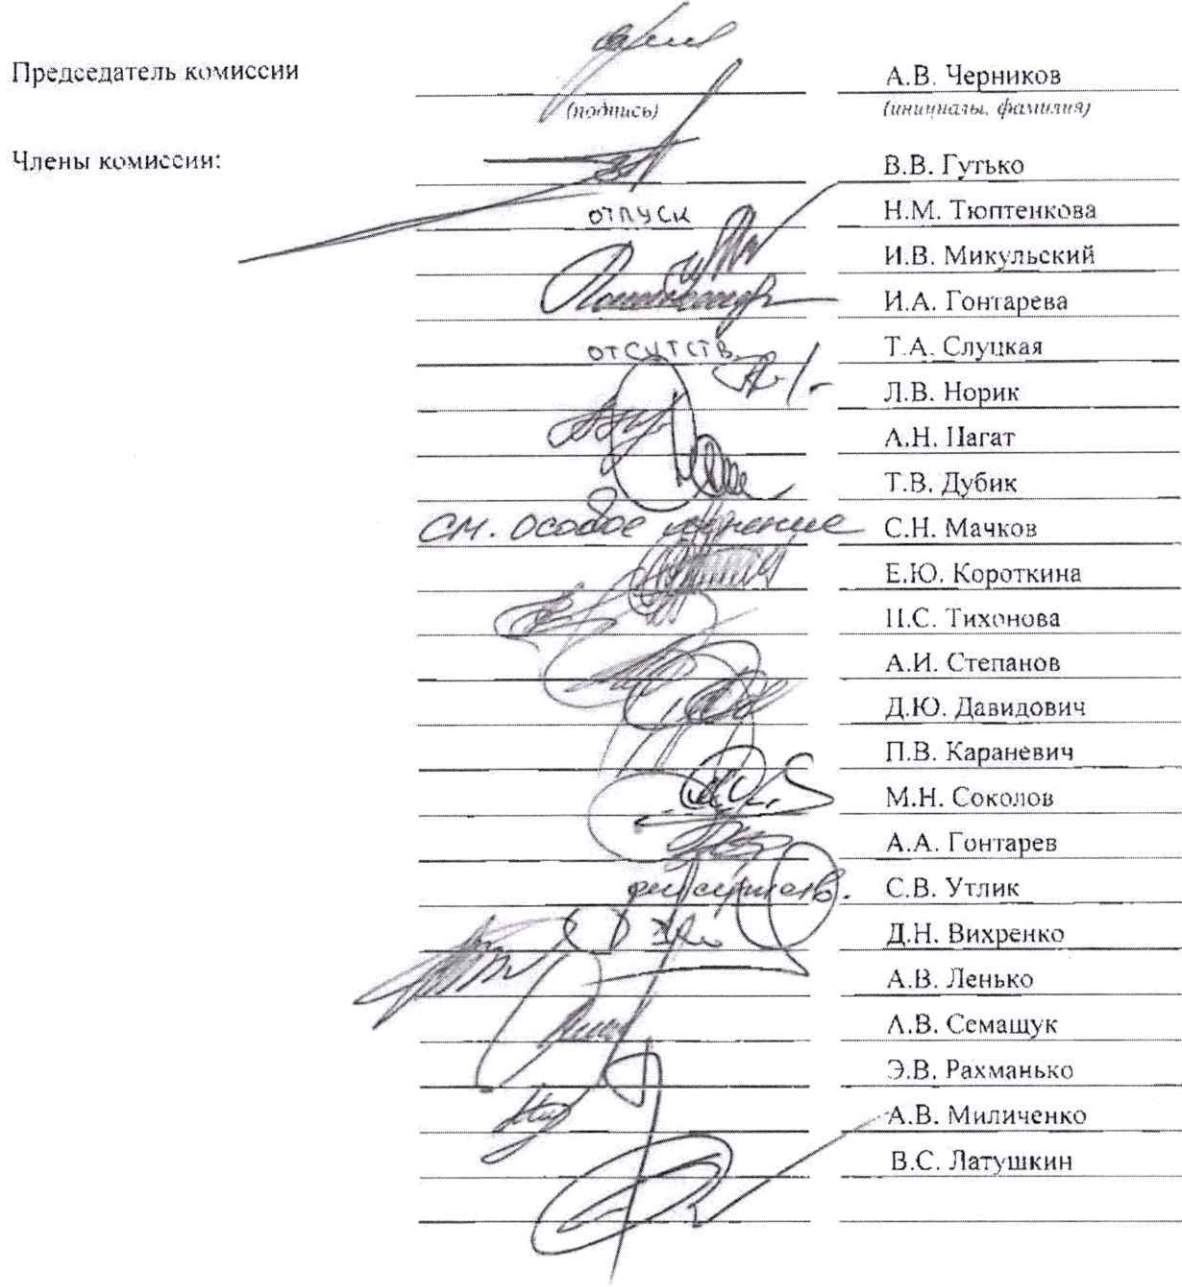 Председатель комиссии А.В. Черников
(подпись) (инициалы, фамилия)
Члены комиссии: В.В. Гутько
отпуск Н.М. Тюптенкова
И.В. Микульский
И.А. Гонтарева
отсутств. Т.А. Слуцкая
Л.В. Норик
А.Н. Пагат
Т.В. Дубик
см. особое мнение С.Н. Мачков
Е.Ю. Короткина
Н.С. Тихонова
А.И. Степанов
Д.Ю. Давидович
П.В. Караневич
М.Н. Соколов
А.А. Гонтарев
С.В. Утлик
Д.Н. Вихренко
А.В. Ленько
А.В. Семащук
Э.В. Рахманько
А.В. Миличенко
В.С. Латушкин